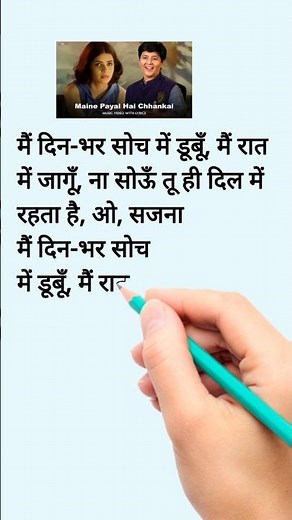 Maine Payal Hai Chhankai
MUSIC VIDEO WITH LYRICS
मैं दिन-भर सोच में डूबूँ, मैं रात
में जागूँ, ना सोऊँ तू ही दिल में
रहता है, ओ, सजना
मैं दिन-भर सोच
में डूबूँ, मैं